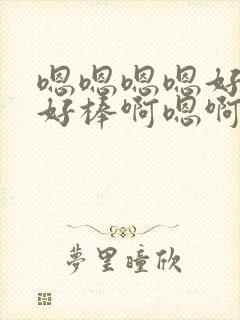 嗯嗯嗯嗯好
好棒啊嗯啊
夢里瞳欣